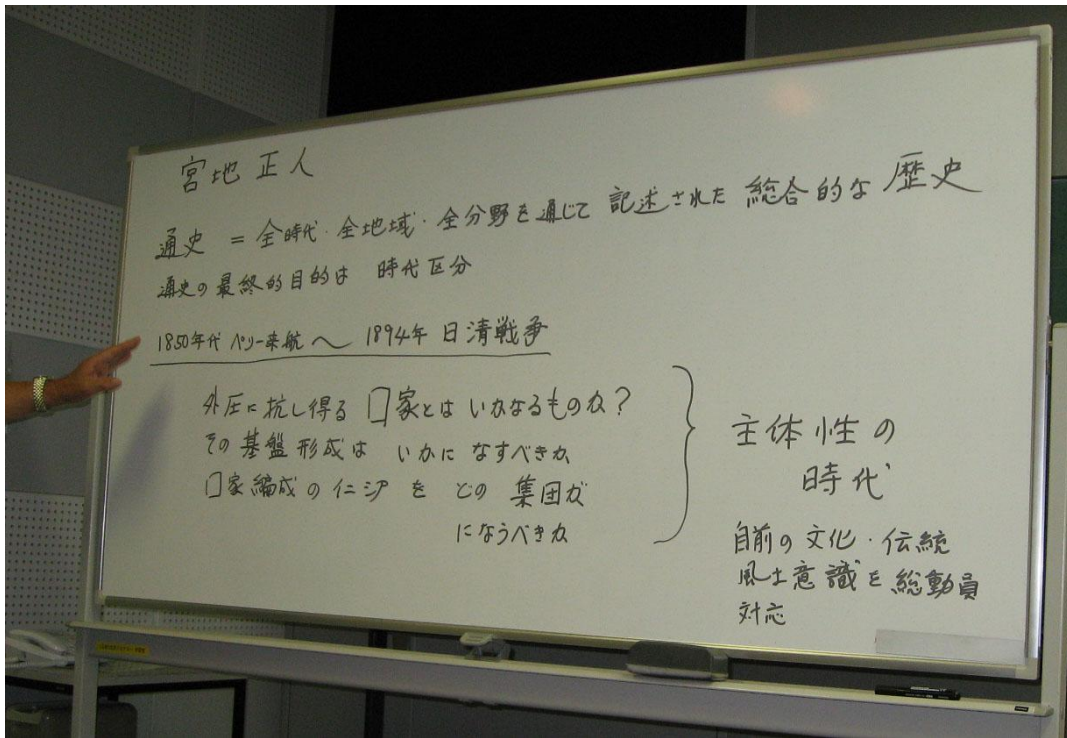 宮地正人
通史 = 全時代・全地域・全分野を通じて 記述された 総合的な 歴史
通史の最終的目的は 時代区分
1850年代 ペリー来航 〜 1894年 日清戦争
外圧に抗し得る 囗家とは いかなるものか?
その基盤形成は いかに なすべきか
囗家編成の イニシアを どの 集団が
になうべきか
主体性の
時代
自前の文化・伝統
風土意識を総動員
対応